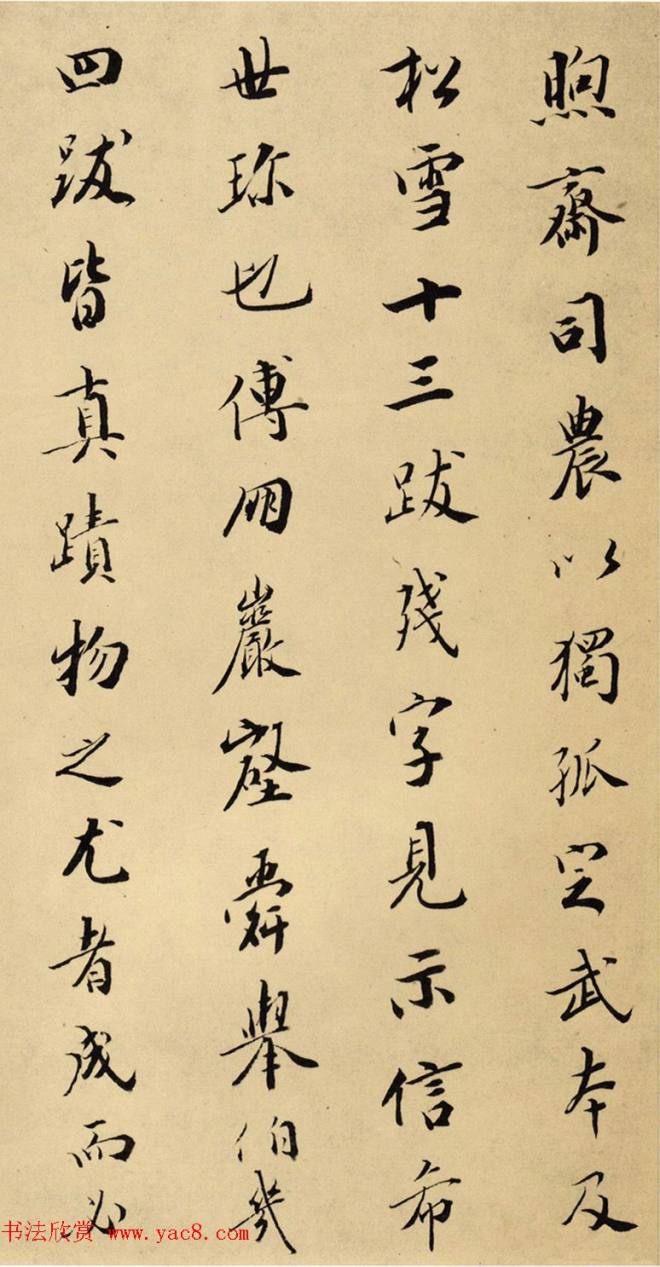 煦齋司農以獨孤定武本及
松雪十三跋殘字見示信希
世珍也傅朋巖壑舜舉伯幾
四跋皆真蹟物之尤者成而必
书法欣赏 www.yac8.com